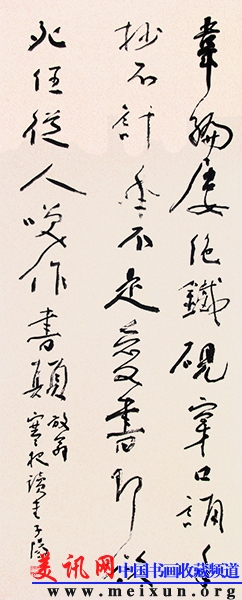 韋編屢絕鐵硯穿口誦手
抄不計年不是愛書即欲
死任從人咲作書顛
放翁
寒夜讀書子
美讯网 中国书画收藏频道
www.meixun.org